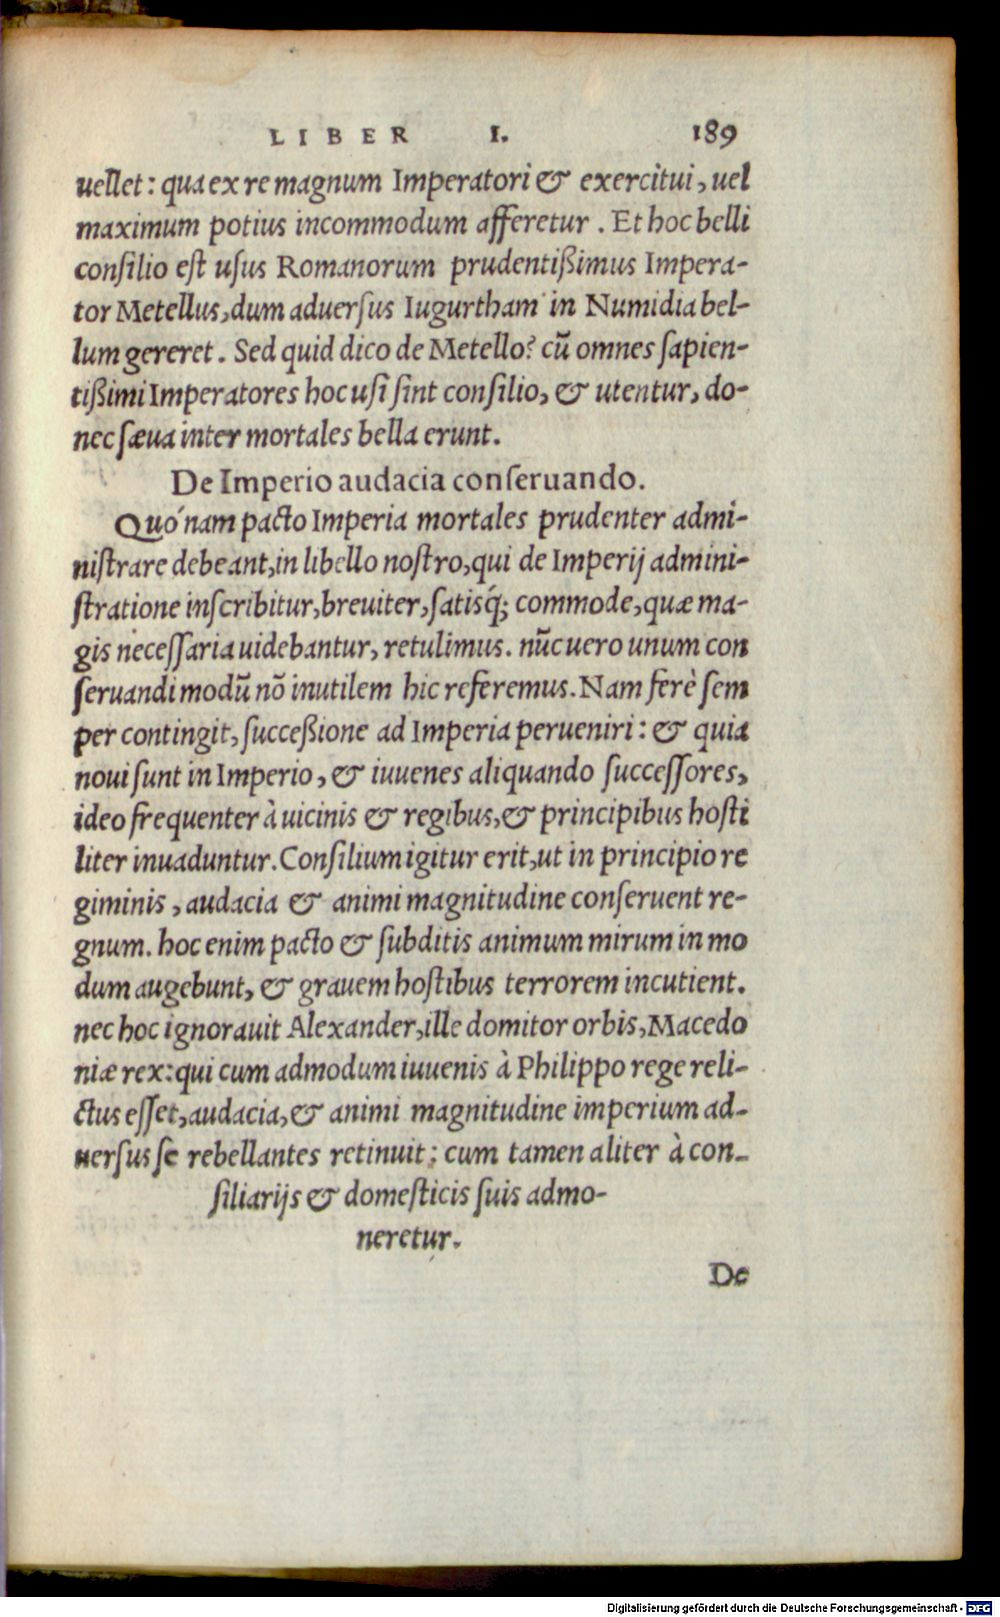 LIBER I. 189
uellet: qua ex re magnum Imperatori & exercitui, uel
maximum potius incommodum afferetur. Et hoc belli
consilio est usus Romanorum prudentißimus Impera-
tor Metellus, dum aduersus Iugurtham in Numidia bel-
lum gereret. Sed quid dico de Metello? cū omnes sapien-
tißimi Imperatores hoc usi sint consilio, & utentur, do-
nec sæua inter mortales bella erunt.
De Imperio audacia conseruando.
Quónam pacto Imperia mortales prudenter admi-
nistrare debeant, in libello nostro, qui de Imperij admini-
stratione inscribitur, breuiter, satisq́; commode, quæ ma-
gis necessaria uidebantur, retulimus. nūc uero unum con
seruandi modū nō inutilem hic referemus. Nam ferè sem
per contingit, succeßione ad Imperia perueniri: & quia
noui sunt in Imperio, & iuuenes aliquando successores,
ideo frequenter à uicinis & regibus, & principibus hosti
liter inuaduntur. Consilium igitur erit, ut in principio re
giminis, audacia & animi magnitudine conseruent re-
gnum. hoc enim pacto & subditis animum mirum in mo
dum augebunt, & grauem hostibus terrorem incutient.
nec hoc ignorauit Alexander, ille domitor orbis, Macedo
niæ rex: qui cum admodum iuuenis à Philippo rege reli-
ctus esset, audacia, & animi magnitudine imperium ad-
uersus se rebellantes retinuit: cum tamen aliter à con-
siliarijs & domesticis suis admo-
neretur.
De
Digitalisierung gefördert durch die Deutsche Forschungsgemeinschaft - DFG